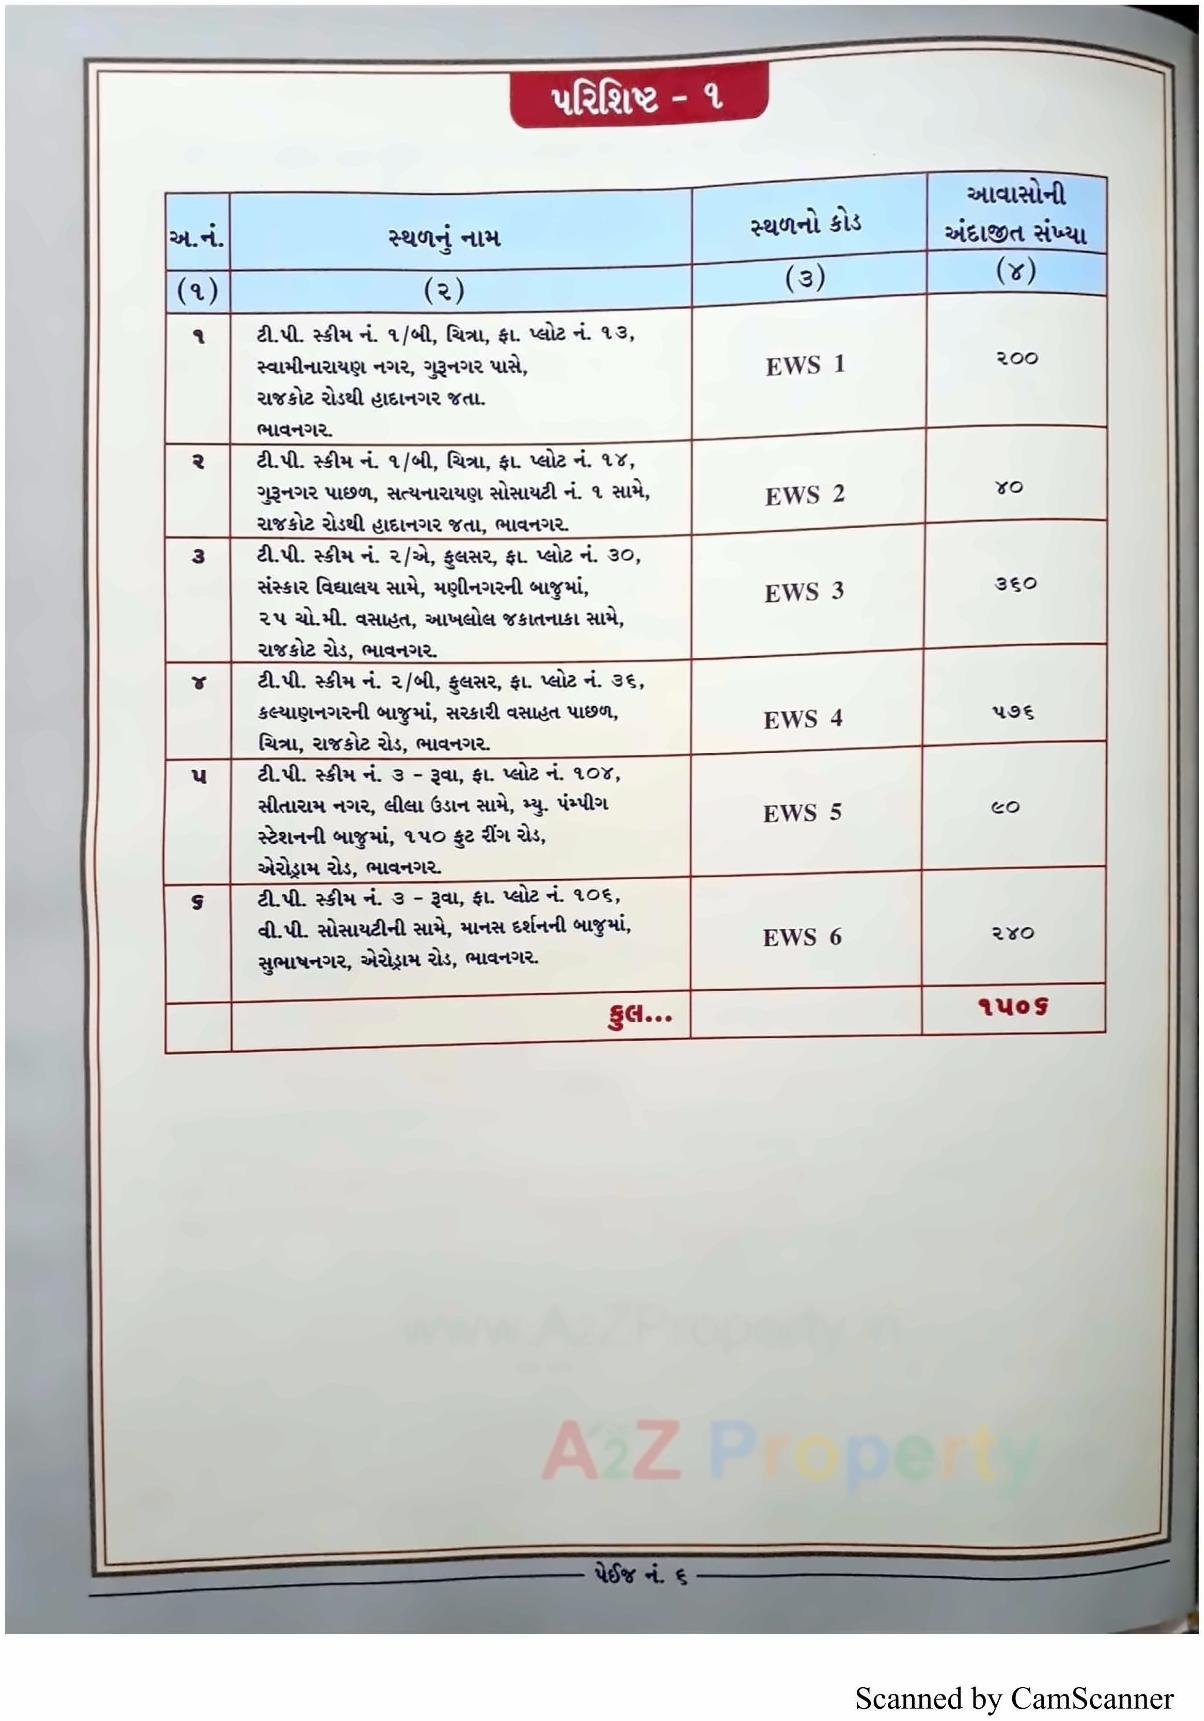 પરિશિષ્ટ - ૧
અ.નં. સ્થળનું નામ સ્થળનો કોડ આવાસોની અંદાજીત સંખ્યા
(૧) (૨) (૩) (૪)
૧ ટી.પી. સ્કીમ નં. ૧/બી, ચિત્રા, ફા. પ્લોટ નં. ૧૩,
સ્વામીનારાયણ નગર, ગુરૂનગર પાસે, EWS 1 ૨૦૦
રાજકોટ રોડથી હાદાનગર જતા.
ભાવનગર.
૨ ટી.પી. સ્કીમ નં. ૧/બી, ચિત્રા, ફા. પ્લોટ નં. ૧૪,
ગુરૂનગર પાછળ, સત્યનારાયણ સોસાયટી નં. ૧ સામે, EWS 2 ૪૦
રાજકોટ રોડથી હાદાનગર જતા, ભાવનગર.
૩ ટી.પી. સ્કીમ નં. ૨/એ, ફુલસર, ફા. પ્લોટ નં. ૩૦,
સંસ્કાર વિદ્યાલય સામે, મણીનગરની બાજુમાં, EWS 3 ૩૬૦
૨૫ ચો.મી. વસાહત, આખલોલ જકાતનાકા સામે,
રાજકોટ રોડ, ભાવનગર.
૪ ટી.પી. સ્કીમ નં. ૨/બી, ફુલસર, ફા. પ્લોટ નં. ૩૬,
કલ્યાણનગરની બાજુમાં, સરકારી વસાહત પાછળ, EWS 4 ૫૭૬
ચિત્રા, રાજકોટ રોડ, ભાવનગર.
૫ ટી.પી. સ્કીમ નં. ૩ - રૂવા, ફા. પ્લોટ નં. ૧૦૪,
સીતારામ નગર, લીલા ઉડાન સામે, મ્યુ. પંમ્પીગ EWS 5 ૯૦
સ્ટેશનની બાજુમાં, ૧૫૦ ફુટ રીંગ રોડ,
એરોડ્રામ રોડ, ભાવનગર.
૬ ટી.પી. સ્કીમ નં. ૩ - રૂવા, ફા. પ્લોટ નં. ૧૦૬,
વી.પી. સોસાયટીની સામે, માનસ દર્શનની બાજુમાં, EWS 6 ૨૪૦
સુભાષનગર, એરોડ્રામ રોડ, ભાવનગર.
કુલ... ૧૫૦૬
www.A2ZProperty.in
A2Z Property
પેઈજ નં. ૬
Scanned by CamScanner